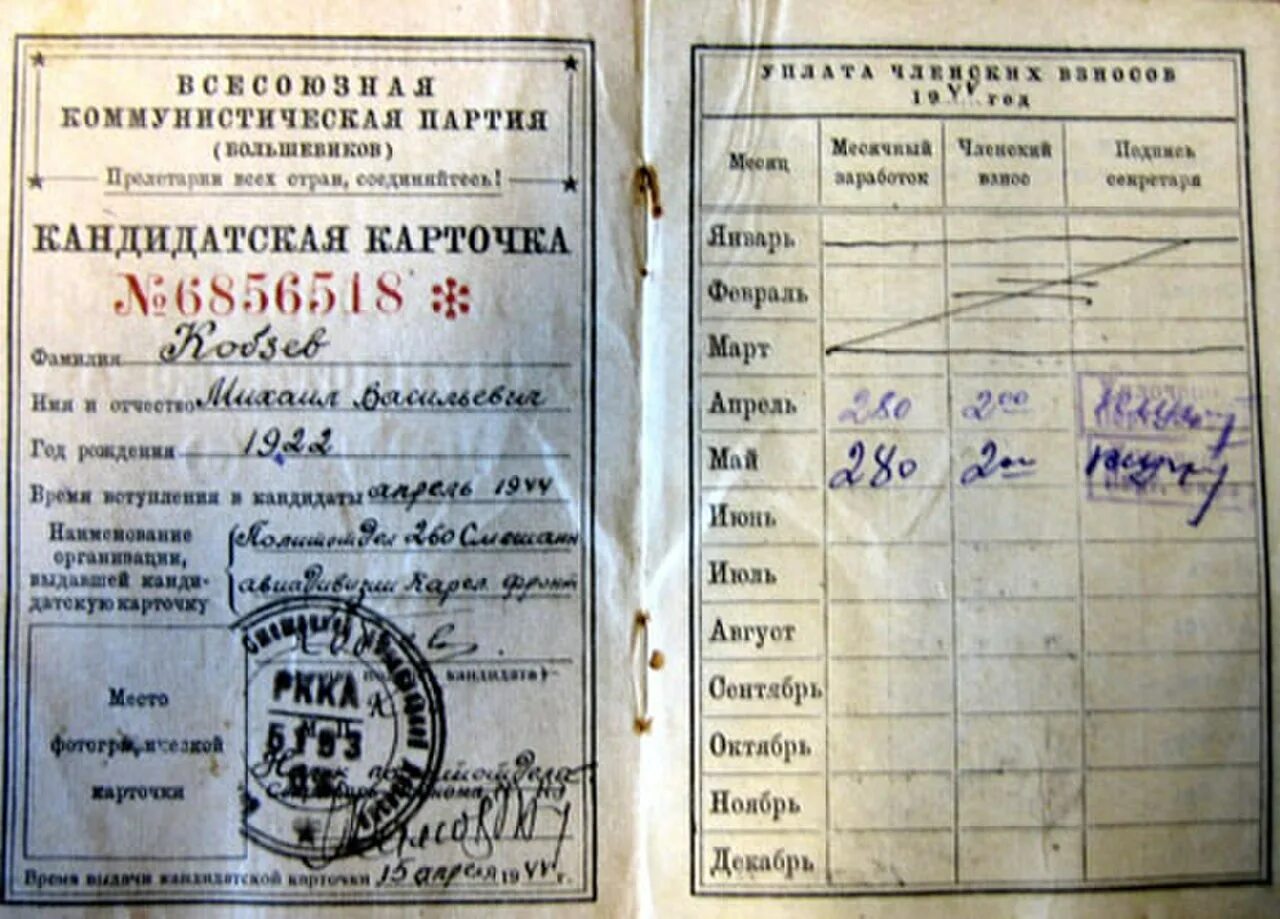 ВСЕСОЮЗНАЯ
КОММУНИСТИЧЕСКАЯ ПАРТИЯ
(БОЛЬШЕВИКОВ)
Пролетарии всех стран, соединяйтесь!
КАНДИДАТСКАЯ КАРТОЧКА
№6856518
Фамилия Кобзев
Имя и отчество Михаил Васильевич
Год рождения 1922
Время вступления в кандидаты апрель 1944
Наименование организации, выдавшей канди-датскую карточку
Политотдел 260 Смешанн
авиадивизии Карел. фронт
кандидата)
РККА
М. П.
Место
фотографической
карточки
Время выдачи кандидатской карточки 15 апреля 1944 г.
УПЛАТА ЧЛЕНСКИХ ВЗНОСОВ
1944 год
Месяц
Месячный заработок
Членский взнос
Подпись секретаря
Январь
Февраль
Март
Апрель 280 2 00
Май 280 2 00
Июнь
Июль
Август
Сентябрь
Октябрь
Ноябрь
Декабрь